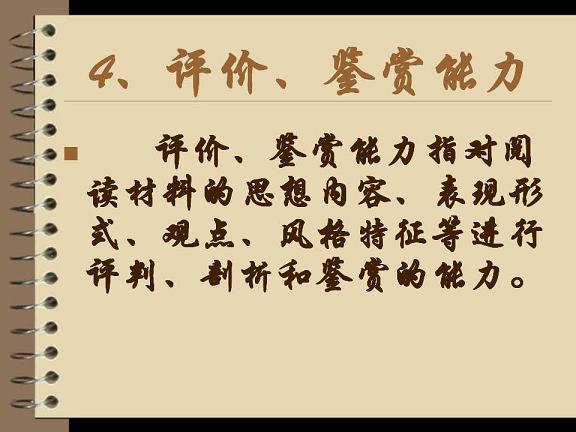 4、评价、鉴赏能力
评价、鉴赏能力指对阅
读材料的思想内容、表现形
式、观点、风格特征等进行
评判、剖析和鉴赏的能力。